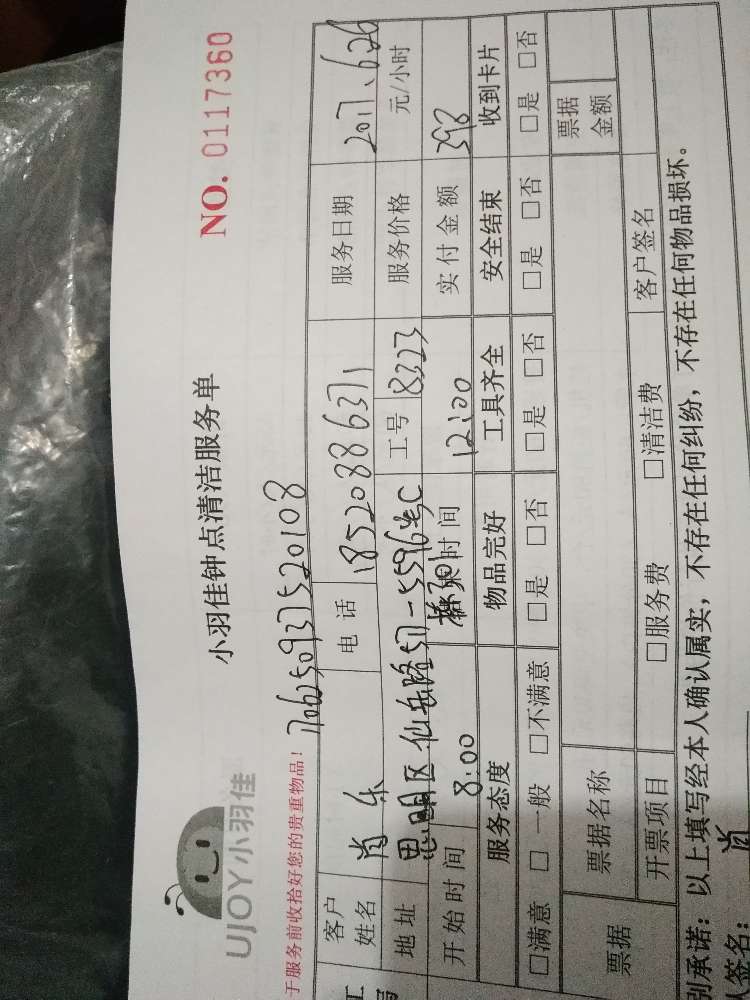 UJOY小羽佳
小羽佳钟点清洁服务单
NO. 0117360
于服务前收拾好您的贵重物品!
1706250937520108
客户姓名 肖乐 电话 18520886371 服务日期 2017.626
地址 思明区仙岳路517-559号 C 工号 8323 服务价格 元/小时
开始时间 8:00 时间 12:00 实付金额 398
服务态度 物品完好 工具齐全 安全结束 收到卡片
□满意 □一般 □不满意 □是 □否 □是 □否 □是 □否 □是 □否
票据 票据名称 票据金额
开票项目 □服务费 □清洁费 客户签名
别承诺：以上填写经本人确认属实，不存在任何纠纷，不存在任何物品损坏。
人签名： 肖